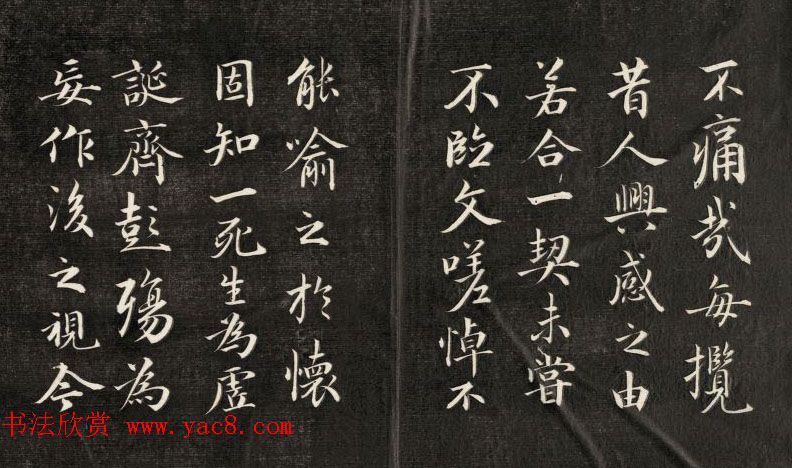 不痛哉每攬
昔人興感之由
若合一契未嘗
不臨文嗟悼不
能喻之於懷
固知一死生為虛
誕齊彭殤為
妄作後之視今
书法欣赏 www.yac8.com